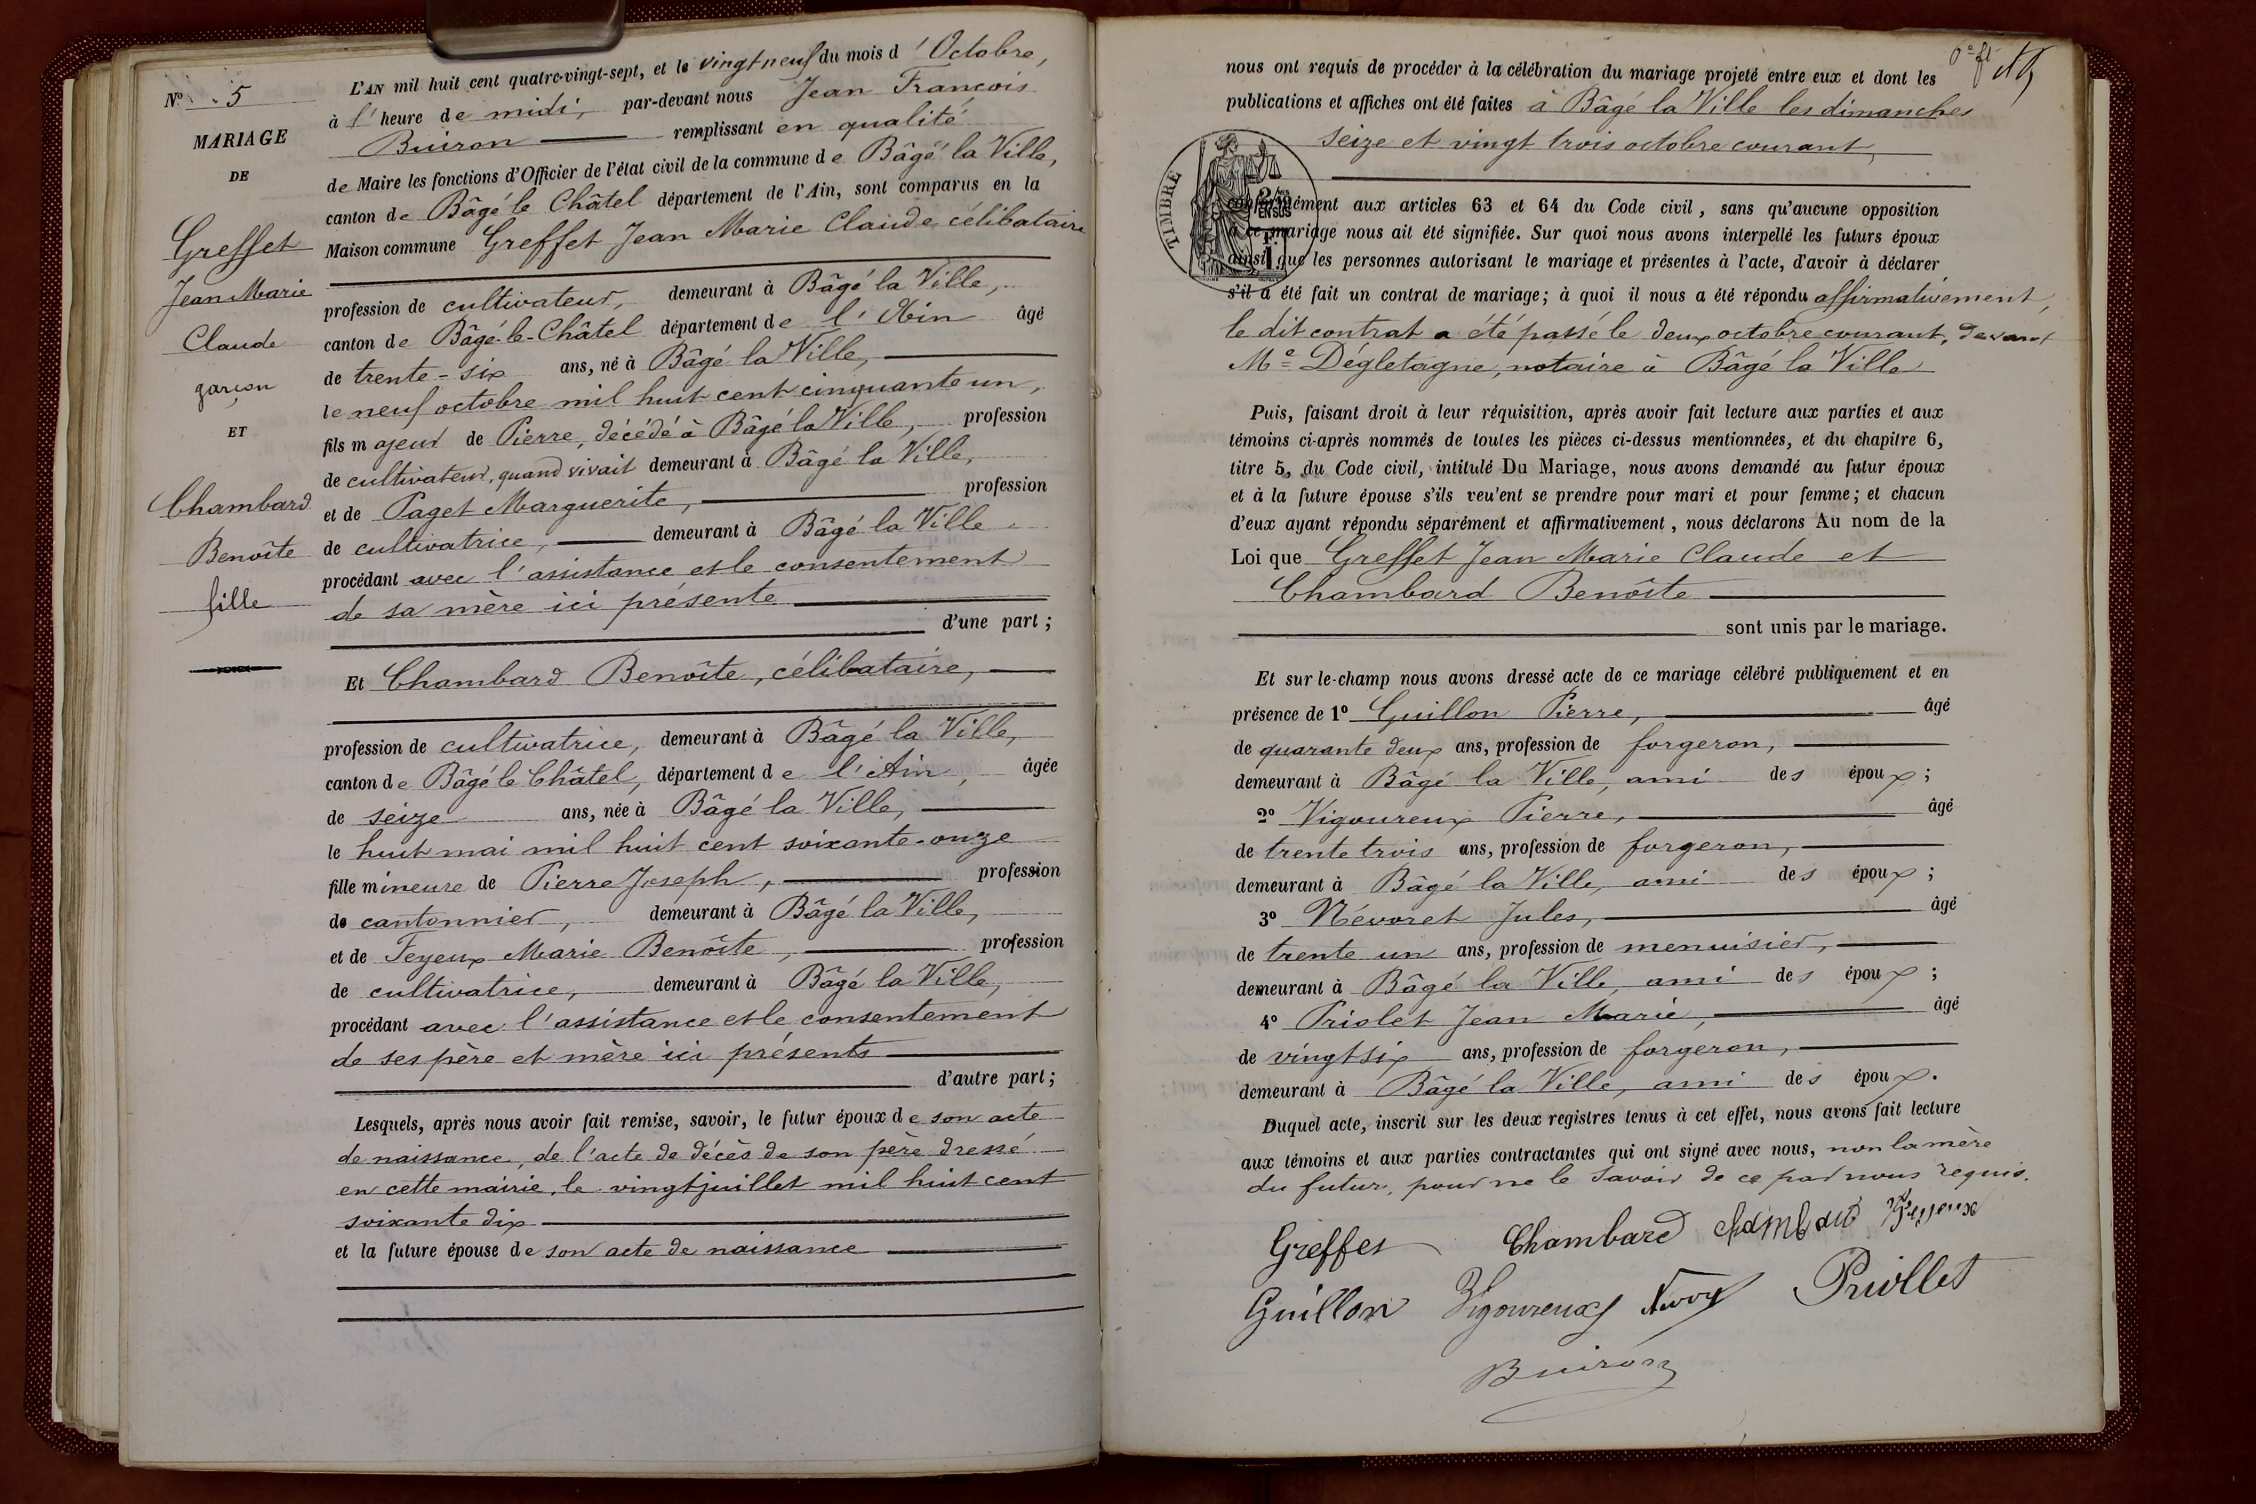 Nº 5
MARIAGE
DE
Greffet
Jean Marie
Claude
garçon
ET
Chambard
Benoîte
fille
L'AN mil huit cent quatre-vingt-sept, et le vingt neuf du mois d'Octobre,
à l'heure de midi, par-devant nous Jean François
Buiron remplissant en qualité
de Maire les fonctions d'Officier de l'état civil de la commune de Bâgé la Ville,
canton de Bâgé le Châtel département de l'Ain, sont comparus en la
Maison commune Greffet Jean Marie Claude, célibataire
profession de cultivateur, demeurant à Bâgé la Ville,
canton de Bâgé-le-Châtel département de l'Ain âgé
de trente-six ans, né à Bâgé la Ville,
le neuf octobre mil huit cent cinquante un,
fils majeur de Pierre, décédé à Bâgé la Ville, profession
de cultivateur, quand vivait demeurant à Bâgé la Ville,
et de Paget Marguerite, profession
de cultivatrice, demeurant à Bâgé la Ville
procédant avec l'assistance et le consentement
de sa mère ici présente
d'une part;
Et Chambard Benoîte, célibataire,
profession de cultivatrice, demeurant à Bâgé la Ville,
canton de Bâgé le Châtel, département de l'Ain, âgée
de seize ans, née à Bâgé la Ville,
le huit mai mil huit cent soixante-onze
fille mineure de Pierre Joseph, profession
de cantonnier, demeurant à Bâgé la Ville,
et de Feyeux Marie Benoîte, profession
de cultivatrice, demeurant à Bâgé la Ville,
procédant avec l'assistance et le consentement
de ses père et mère ici présents
d'autre part;
Lesquels, après nous avoir fait remise, savoir, le futur époux de son acte
de naissance, de l'acte de décès de son père dressé
en cette mairie, le vingt juillet mil huit cent
soixante dix
et la future épouse de son acte de naissance
nous ont requis de procéder à la célébration du mariage projeté entre eux et dont les
publications et affiches ont été faites à Bâgé la Ville les dimanches
seize et vingt trois octobre courant,
TIMBRE
EN SUS
conformément aux articles 63 et 64 du Code civil, sans qu'aucune opposition
à ce mariage nous ait été signifiée. Sur quoi nous avons interpellé les futurs époux
ainsi que les personnes autorisant le mariage et présentes à l'acte, d'avoir à déclarer
s'il a été fait un contrat de mariage; à quoi il nous a été répondu affirmativement,
le dit contrat a été passé le deux octobre courant, devant
Me Dégletagne, notaire à Bâgé la Ville
Puis, faisant droit à leur réquisition, après avoir fait lecture aux parties et aux
témoins ci-après nommés de toutes les pièces ci-dessus mentionnées, et du chapitre 6,
titre 5, du Code civil, intitulé Du Mariage, nous avons demandé au futur époux
et à la future épouse s'ils veu'ent se prendre pour mari et pour femme; et chacun
d'eux ayant répondu séparément et affirmativement, nous déclarons Au nom de la
Loi que Greffet Jean Marie Claude et
Chambard Benoîte
sont unis par le mariage.
Et sur-le-champ nous avons dressé acte de ce mariage célébré publiquement et en
présence de 1º Guillon Pierre, âgé
de quarante deux ans, profession de forgeron,
demeurant à Bâgé la Ville, ami des époux;
2º Vigoureux Pierre, âgé
de trente trois ans, profession de forgeron,
demeurant à Bâgé la Ville, ami des époux;
3º Névoret Jules, âgé
de trente un ans, profession de menuisier,
demeurant à Bâgé la Ville, ami des époux;
4º Priolet Jean Marie, âgé
de vingt six ans, profession de forgeron,
demeurant à Bâgé la Ville, ami des époux.
Duquel acte, inscrit sur les deux registres tenus à cet effet, nous avons fait lecture
aux témoins et aux parties contractantes qui ont signé avec nous, non la mère
du futur, pour ne le savoir de ce par nous requis.
Greffet Chambard Chambard Feyeux
Guillon Vigoureux Priollet
Buiron